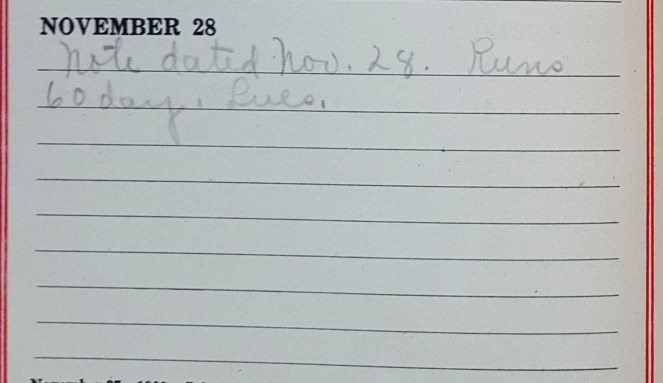 NOVEMBER 28
Note dated Nov. 28. Runs
60 days. Lues.